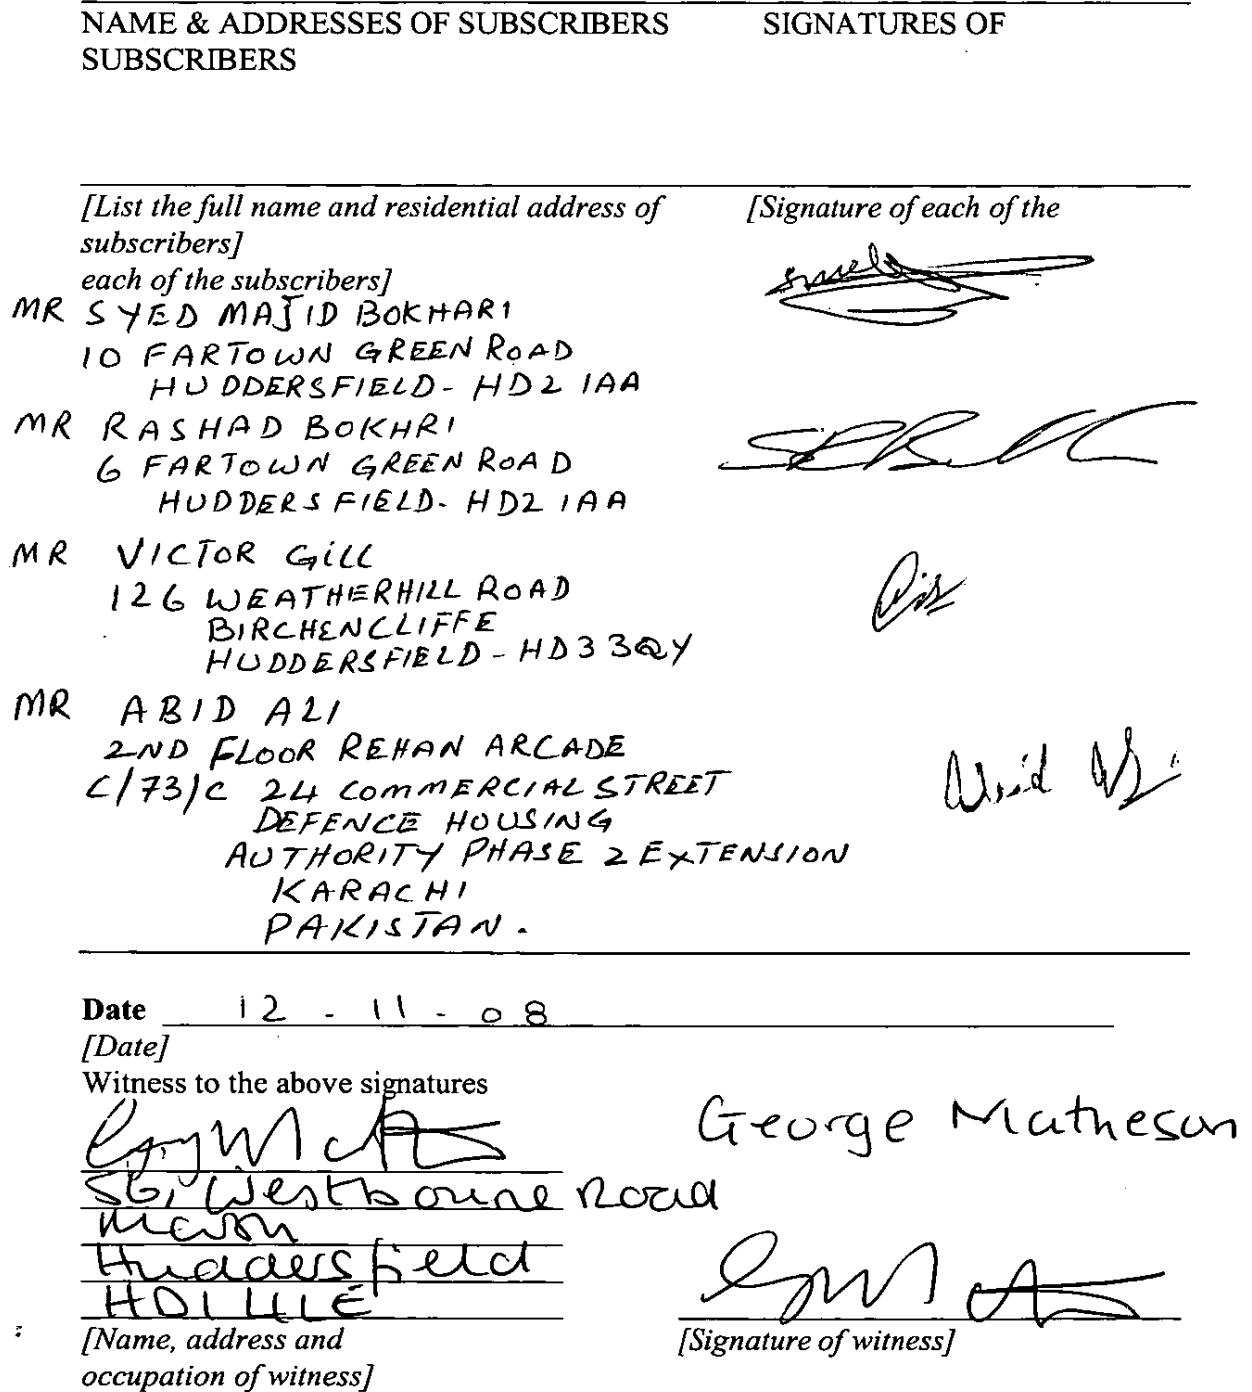 NAME & ADDRESSES OF SUBSCRIBERS SIGNATURES OF
SUBSCRIBERS
[List the full name and residential address of [Signature of each of the
subscribers]
each of the subscribers]
MR SYED MAJID BOKHARI
10 FARTOWN GREEN ROAD
HUDDERSFIELD - HD2 1AA
MR RASHAD BOKHRI
6 FARTOWN GREEN ROAD
HUDDERSFIELD - HD2 1AA
MR VICTOR GILL
126 WEATHERHILL ROAD
BIRCHENCLIFFE
HUDDERSFIELD - HD3 3QY
MR ABID ALI
2ND FLOOR REHAN ARCADE
C/73/C 24 COMMERCIAL STREET
DEFENCE HOUSING
AUTHORITY PHASE 2 EXTENSION
KARACHI
PAKISTAN.
Date 12 - 11 - 08
[Date]
Witness to the above signatures
George Matheson
56, Westbourne Road
Marsh
Huddersfield
HD1 4LE
[Name, address and [Signature of witness]
occupation of witness]